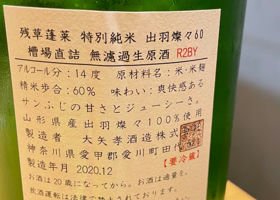 残草蓬莱 特別純米 出羽燦々60
槽場直詰 無濾過生原酒 R2BY
アルコール分：14度 原材料名：米・米麹
精米歩合：60% 味わい：爽快感ある
サンふじの甘さとジューシーさ。
山形県産出羽燦々100%使用
製造者 大矢孝酒造株式
神奈川県愛甲郡愛川町田代
製造年月 2020.12 【要冷蔵】
お酒は20歳になってから。お酒は適量を。
飲酒運転は法律で禁止され